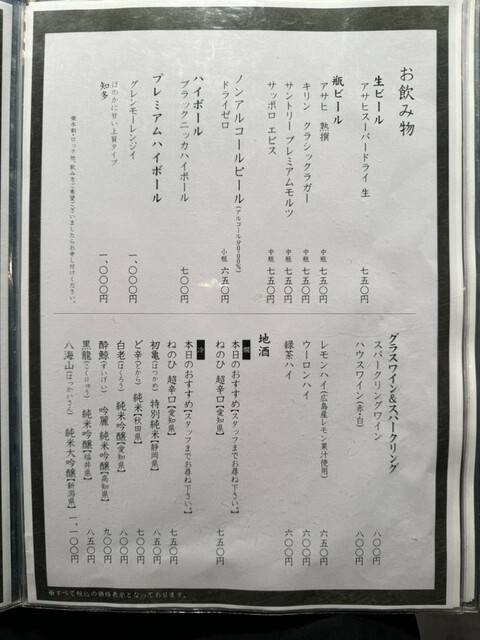 お飲み物
生ビール
アサヒスーパードライ 生 七五〇円
瓶ビール
アサヒ 熟撰 中瓶 七五〇円
キリン クラシックラガー 中瓶 七五〇円
サントリー プレミアムモルツ 中瓶 七五〇円
サッポロ エビス 中瓶 七五〇円
ノンアルコールビール(アルコール分0.00%)
ドライゼロ 小瓶 六五〇円
ハイボール
ブラックニッカハイボール 七〇〇円
プレミアムハイボール
グレンモーレンジィ 一、〇〇〇円
ほのかに甘い上質タイプ
知多 一、〇〇〇円
※水割・ロック他、飲み方をご希望ございましたらお申し付けください。
グラスワイン&スパークリング
スパークリングワイン 八〇〇円
ハウスワイン(赤・白) 八〇〇円
レモンハイ(広島産レモン果汁使用) 六五〇円
ウーロンハイ 六〇〇円
緑茶ハイ 六〇〇円
地酒
燗
本日のおすすめ【スタッフまでお尋ね下さい。】
ねのひ 超辛口【愛知県】 七五〇円
冷
本日のおすすめ【スタッフまでお尋ね下さい。】
ねのひ 超辛口【愛知県】 七五〇円
初亀(はつかめ) 特別純米【静岡県】 八五〇円
ど辛(どから) 純米【秋田県】 七〇〇円
白老(はくろう) 純米吟醸【愛知県】 八〇〇円
酔鯨(すいげい) 吟麗 純米吟醸【高知県】 九〇〇円
黒龍(こくりゅう) 純米吟醸【福井県】 八五〇円
八海山(はっかいさん) 純米大吟醸【新潟県】 一、一〇〇円
※すべて税込の価格表示となっております。